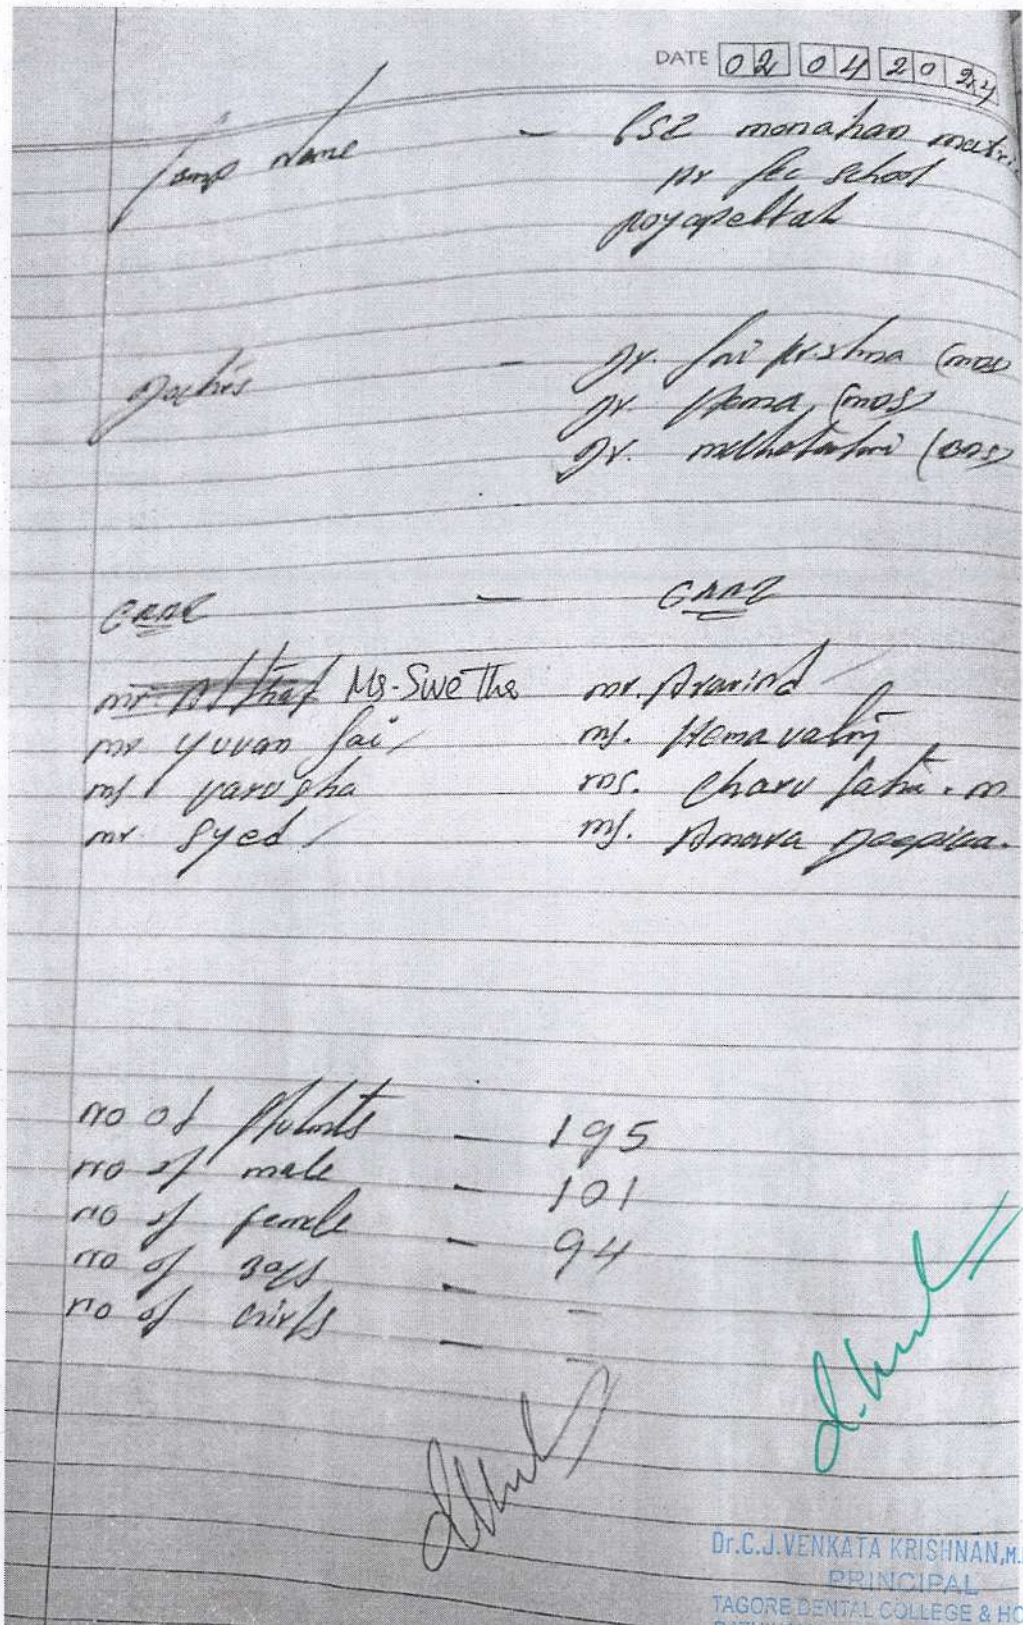 DATE 02 04 2024
Camp Name - CSI monahan matri
Hr Sec School
royapettah
Doctors - Dr. Sai Krishna (MDS
Dr. Hema (MDS)
Dr. (BDS)
CRRI - CRRI
Mr. Althaf Ms. Swetha mr. Aravind
mr Yuvan Sai ms. Hemavathy
ms Varusha ms. Charu Latha . M
mr Syed ms. Amara Deepika.
no of Students - 195
no of male - 101
no of female - 94
no of Boys - -
no of Girls - -
Dr.C.J.VENKATA KRISHNAN,M.
PRINCIPAL
TAGORE DENTAL COLLEGE & HO